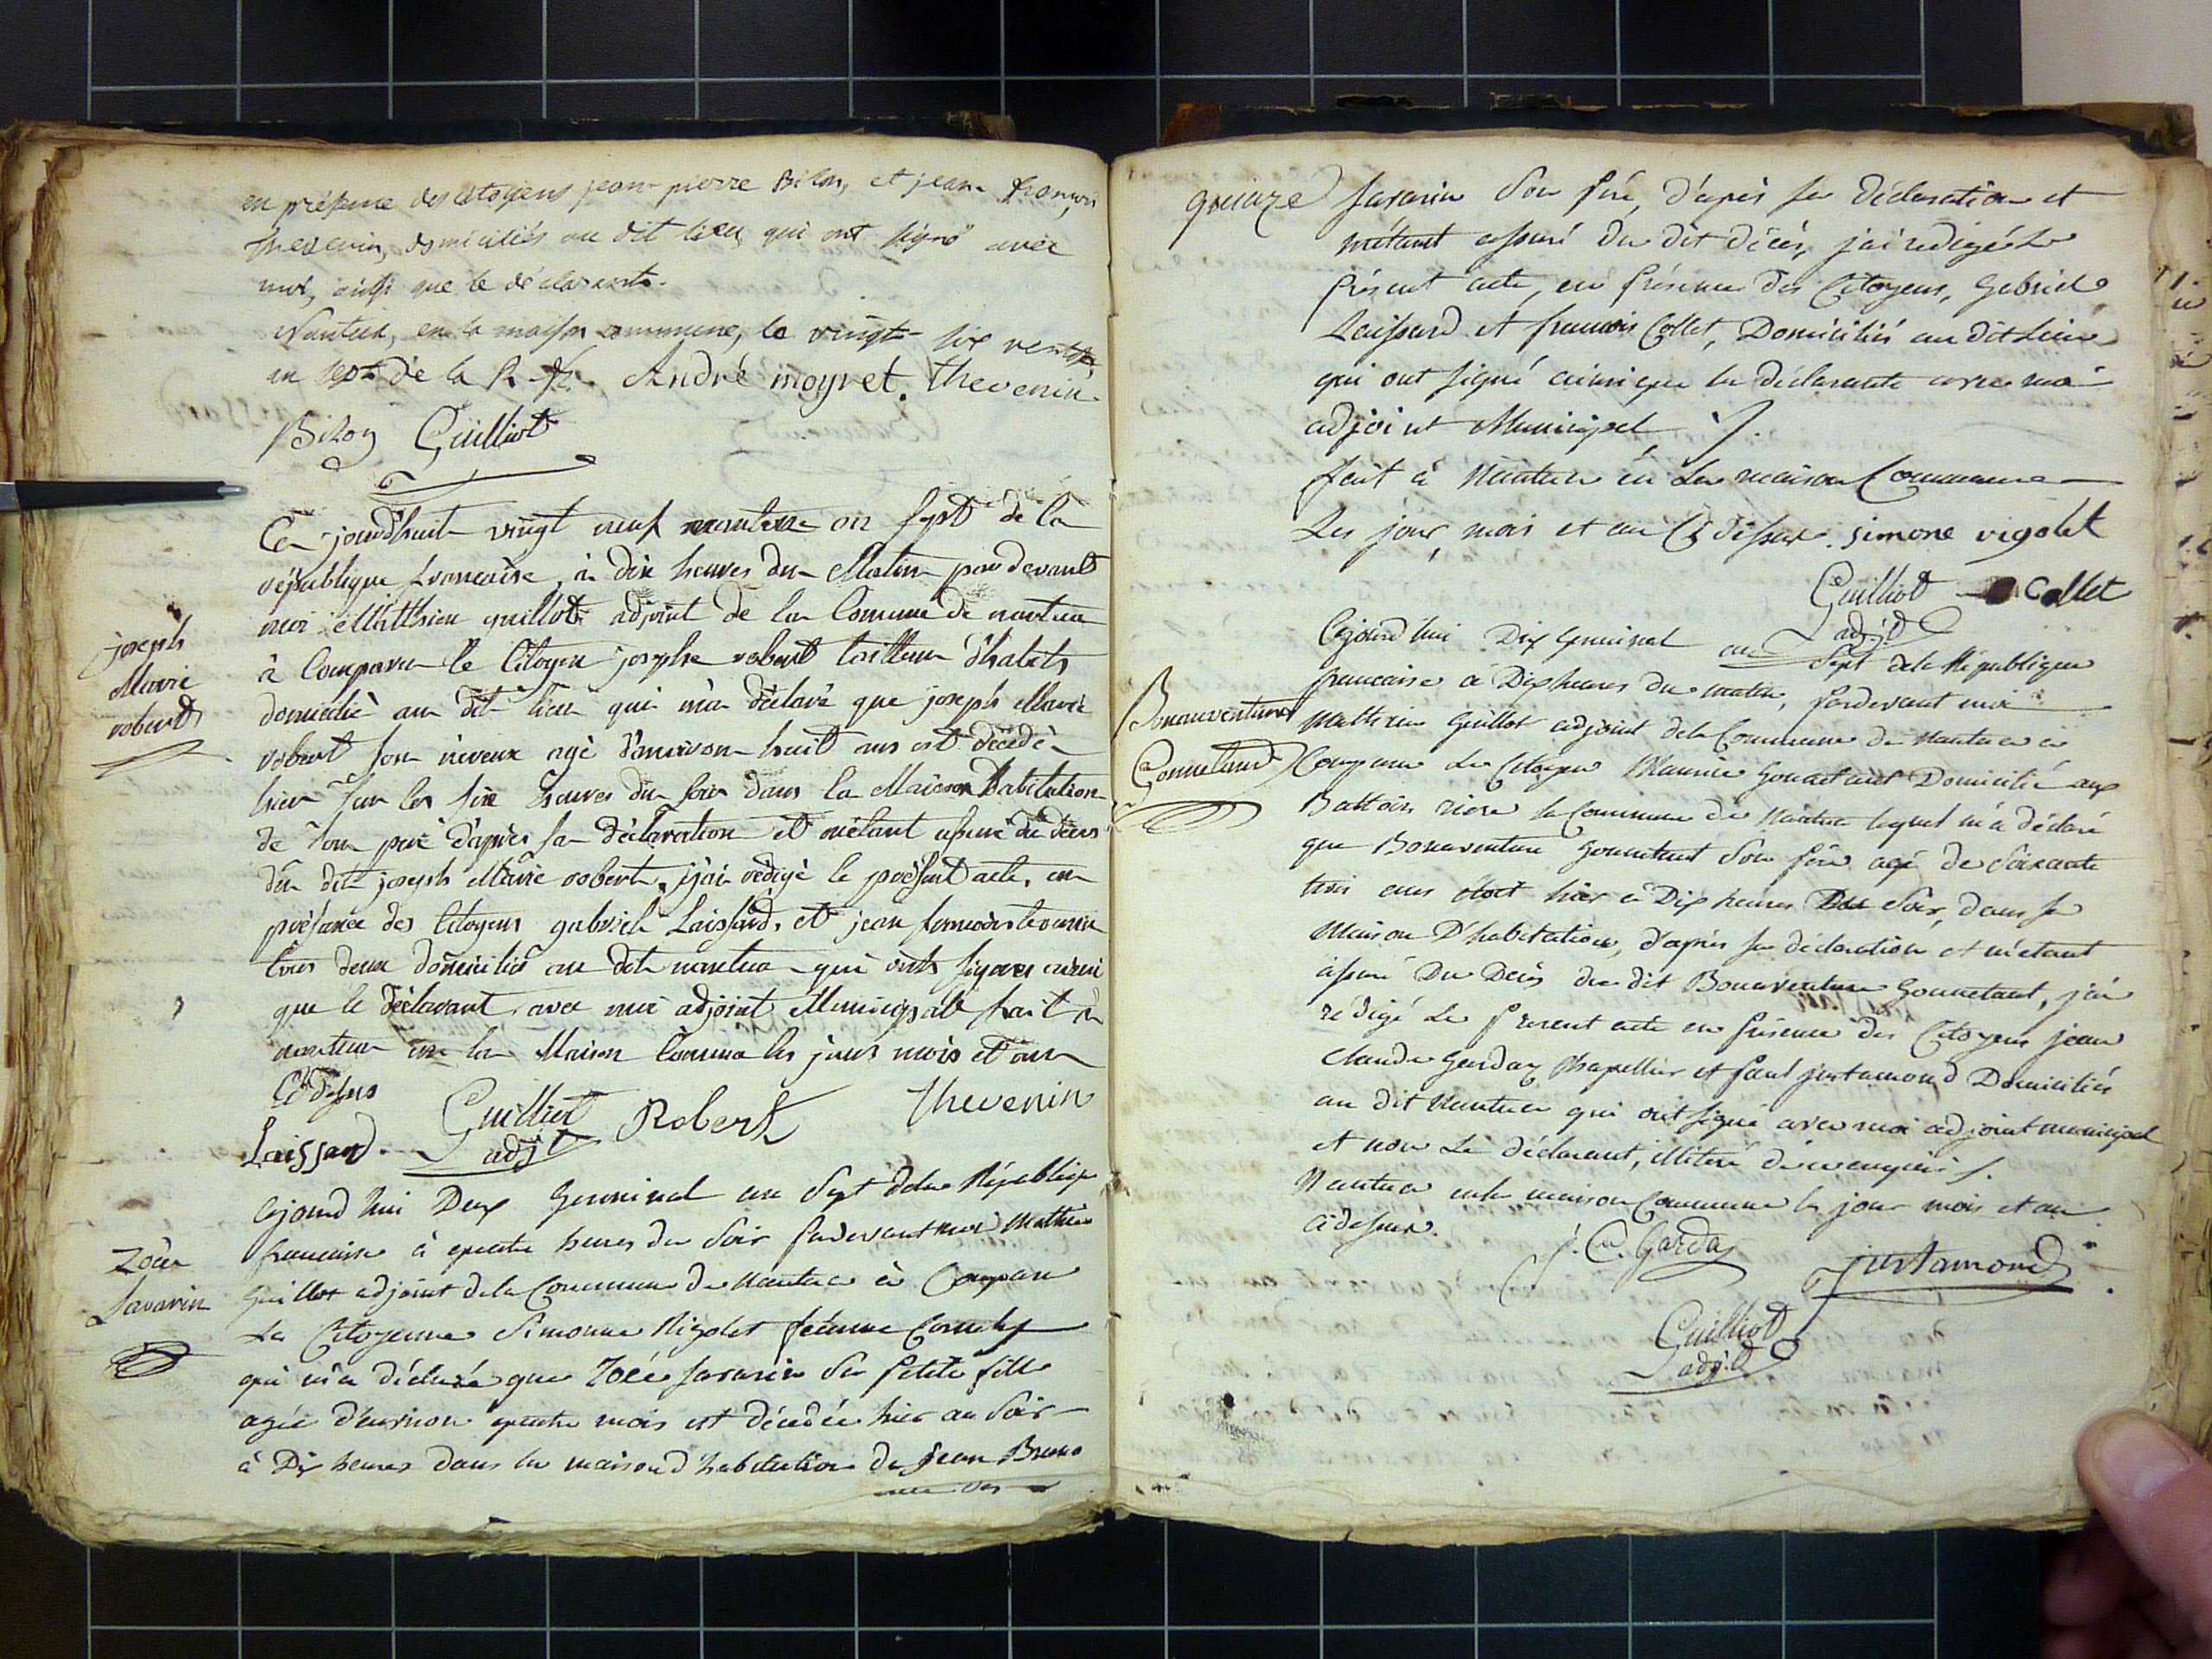 en présence des citoyens jean-pierre Bilon, et jean françois
thevenin, domiciliés au dit lieu, qui ont signé avec
moi, ainsi que le déclarant.
Nantua, en la maison commune, le vingt-six ventôse
an sept de la R. fr. André moyret. thevenin
Bilon Guilliot
Ce jourdhuit vingt neuf ventose an sept de la
république francaise, à dix heures du Matin par devant
moi Matthieu guillot adjoint de la Comune de nantua
à Comparu le Citoyen josephe robert tailleur d'habits
domicilié au dit lieu qui m'a déclaré que joseph Marie
robert son neveux agé d'environ huit ans est décédé
hier sur les six heures du soir dans la Maison d'habitation
de son pere d'après sa déclaration et m'étant assuré du déces
du dit joseph Marie robert, j'ai rédigé le présent acte, en
présance des Citoyens gabriel Laissard, et jean francois thevenin
tous deux domicilié au dit nantua qui onts signés ainsi
que le déclarant avec moi adjoint Municipale fait à
nantua en la Maison Comune les jours mois et an
Cy dessus
Guilliot Robert thevenin
Laissard. adjt
joseph
Marie
robert
Cejourd'hui Deux Germinal an Sept dela République
francaise à quatre heures du Soir pardevant moi Mathieu
Guillot adjoint dela Commune de Nantua à Comparu
La Citoyenne Simonne Vigolet femme
qui m'a déclaré que Zoée Savarin Sa petite fille
agée d'environ quatre mois est décédée hier au Soir
à Dix heures dans la maison d'habitation de Jean Bruno
Zoée
Savarin
quinze
Savarin Son père, d'après sa déclaration et
m'étant assuré du dit décès, j'ai redigé le
présent acte, en présence des Citoyens, Gabriel
Laissard et francois Collet, Domiciliés au dit Lieu
qui ont signé ainsi que la déclarante avec moi
adjoint Municipal
fait à Nantua en la maison Commune
Les jour, mois et an Cy dessus. simone vigolet
Guilliot Collet
adjt
Cejourd'hui Dix Germinal an Sept dela République
francaise à Dix heures du matin, pardevant moi
Mathieu Guillot adjoint dela Commune de Nantua à
Comparu Le Citoyen Maurice Gonnetant Domicilié aux
Battoirs riere la Commune de Nantua lequel m'a déclaré
que Bonaventure Gonnetant Son père agé de Soixante
trois ans hier à Dix heures Du Soir, dans sa
Maison D'habitation, d'après sa déclaration et m'étant
assuré Du Decès du dit Bonaventure Gonnetant, j'ai
redigé Le présent acte en présence des Citoyens jean
Claude Garday Chapellier et paul justamond Domiciliés
au dit Nantua qui ont signé avec moi adjoint municipal
et non Le déclarant, illiteré de ce enquis
Nantua en la maison Commune les jour mois et an
ci dessus.
Bonaventure
Gonnetant
j. C. Garday justamond
Guilliot
adjt